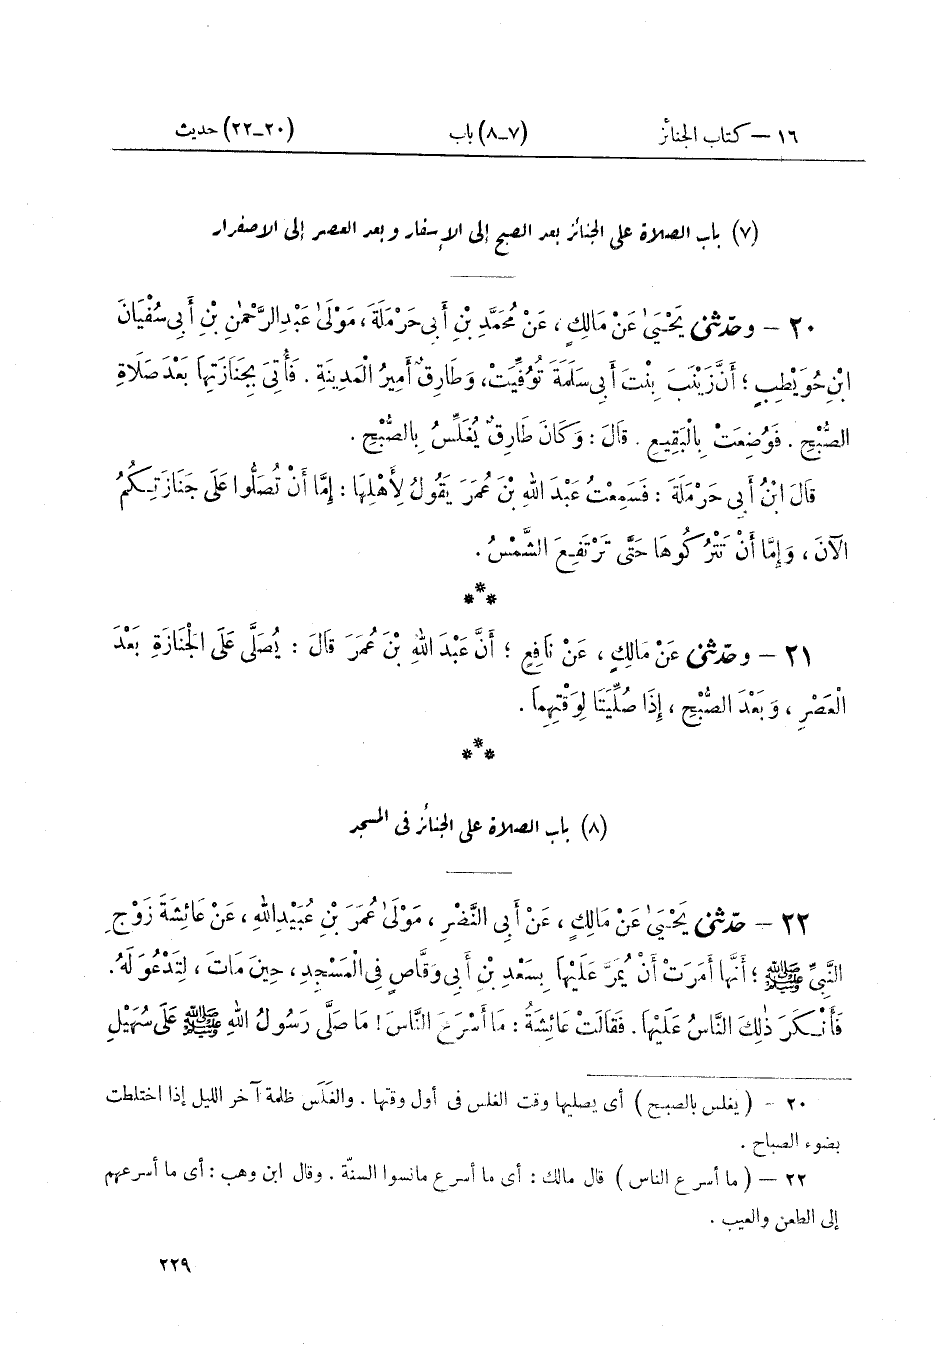 ١٦ – كتاب الجنائز (٧ــ٨) باب (٢٠ــ٢٢) حديث
(٧) باب الصلاة على الجنائز بعد الصبح إلى الإسفار وبعد العصر إلى الاصفرار
٢٠ – وحدّثنى يَحْيَىٰ عَنْ مَالِكٍ، عَنْ مُحَمَّدِ بْنِ أَبِى حَرْمَلَةَ، مَوْلَىٰ عَبْدِ الرَّحْمٰنِ بْنِ أَبِى سُفْيَانَ
ابْنِ حُوَيْطِبٍ؛ أَنَّ زَيْنَبَ بِنْتَ أَبِى سَلَمَةَ تُوُفِّيَتْ، وَطَارِقٌ أَمِيرُ الْمَدِينَةِ. فَأُتِىَ بِجَنَازَتِهَا بَعْدَ صَلَاةِ
الصُّبْحِ. فَوُضِعَتْ بِالْبَقِيعِ. قَالَ: وَكَانَ طَارِقٌ يُغَلِّسُ بِالصُّبْحِ.
قَالَ ابْنُ أَبِى حَرْمَلَةَ: فَسَمِعْتُ عَبْدَ اللهِ بْنَ عُمَرَ يَقُولُ لِأَهْلِهَا: إِمَّا أَنْ تُصَلُّوا عَلَى جَنَازَتِكُمُ
الْآنَ، وَإِمَّا أَنْ تَتْرُكُوهَا حَتَّى تَرْتَفِعَ الشَّمْسُ.
***
٢١ – وحدّثنى عَنْ مَالِكٍ، عَنْ نَافِعٍ؛ أَنَّ عَبْدَ اللهِ بْنَ عُمَرَ قَالَ: يُصَلَّى عَلَى الْجَنَازَةِ بَعْدَ
الْعَصْرِ، وَبَعْدَ الصُّبْحِ، إِذَا صُلِّيَتَا لِوَقْتِهِمَا.
***
(٨) باب الصلاة على الجنائز فى المسجد
٢٢ – حدّثنى يَحْيَىٰ عَنْ مَالِكٍ، عَنْ أَبِى النَّضْرِ، مَوْلَىٰ عُمَرَ بْنِ عُبَيْدِ اللهِ، عَنْ عَائِشَةَ زَوْجِ
النَّبِىِّ ﷺ؛ أَنَّهَا أَمَرَتْ أَنْ يُمَرَّ عَلَيْهَا بِسَعْدِ بْنِ أَبِى وَقَّاصٍ فِى الْمَسْجِدِ، حِينَ مَاتَ، لِتَدْعُوَ لَهُ.
فَأَنْكَرَ ذٰلِكَ النَّاسُ عَلَيْهَا. فَقَالَتْ عَائِشَةُ: مَا أَسْرَعَ النَّاسَ! مَا صَلَّى رَسُولُ اللهِ ﷺ عَلَى سُهَيْلِ
٢٠ – (يغلس بالصبح) أى يصليها وقت الغلس فى أول وقتها. والغَلَس ظلمة آخر الليل إذا اختلطت
بضوء الصباح.
٢٢ – (ما أسرع الناس) قال مالك: أى ما أسرع مانسوا السنّة. وقال ابن وهب: أى ما أسرعهم
إلى الطعن والعيب.
٢٢٩